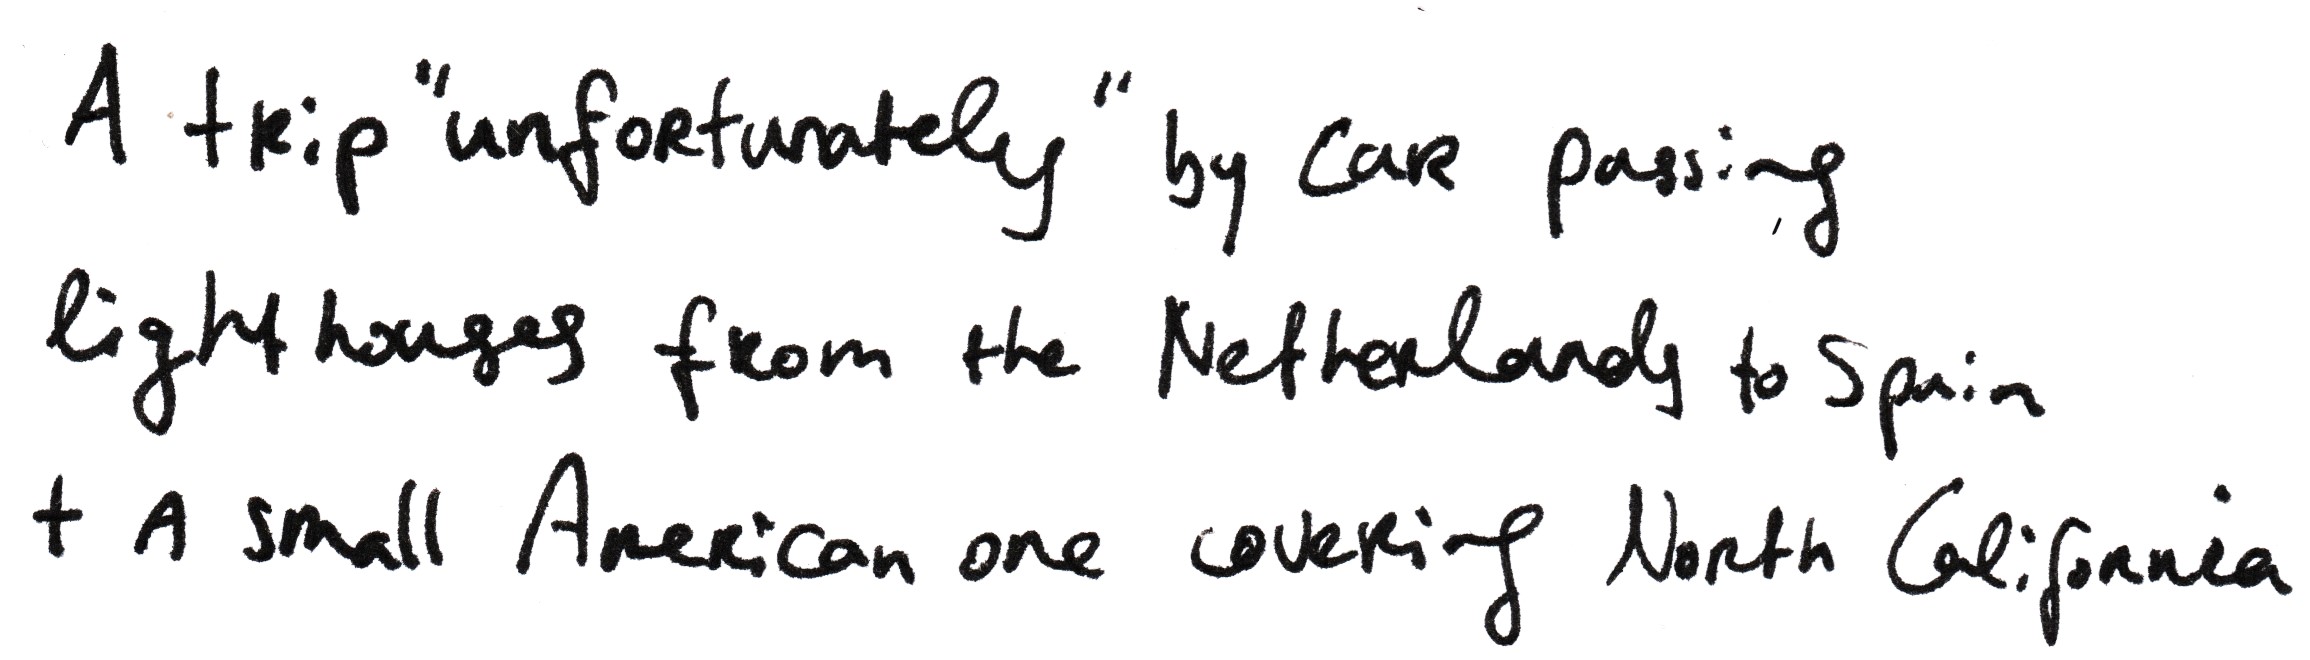 A trip "unfortunately" by car passing
lighthouses from the Netherlands to Spain
+ A small American one covering North California